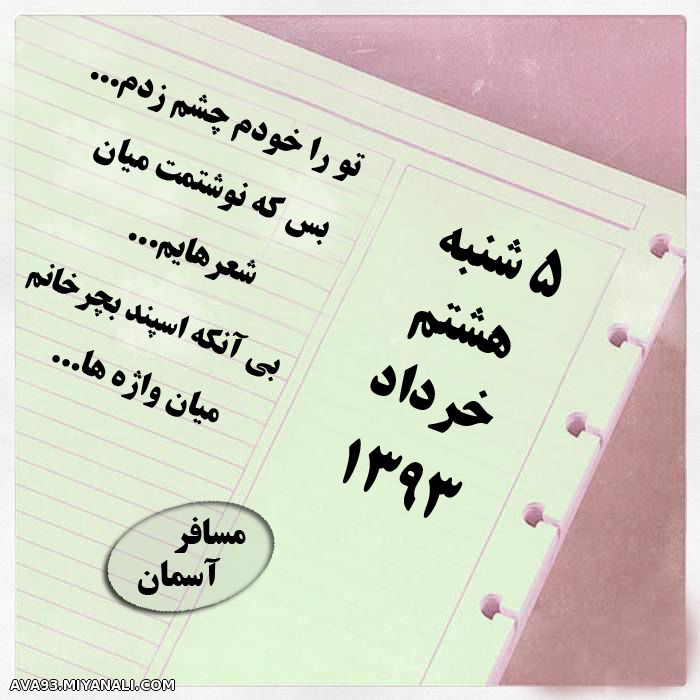 تو را خودم چشم زدم...
بس که نوشتمت میان
شعرهایم...
بی آنکه اسپند بچرخانم
میان واژه ها...
۵ شنبه
هشتم
خرداد
۱۳۹۳
مسافر
آسمان
AVA93.MIYANALI.COM